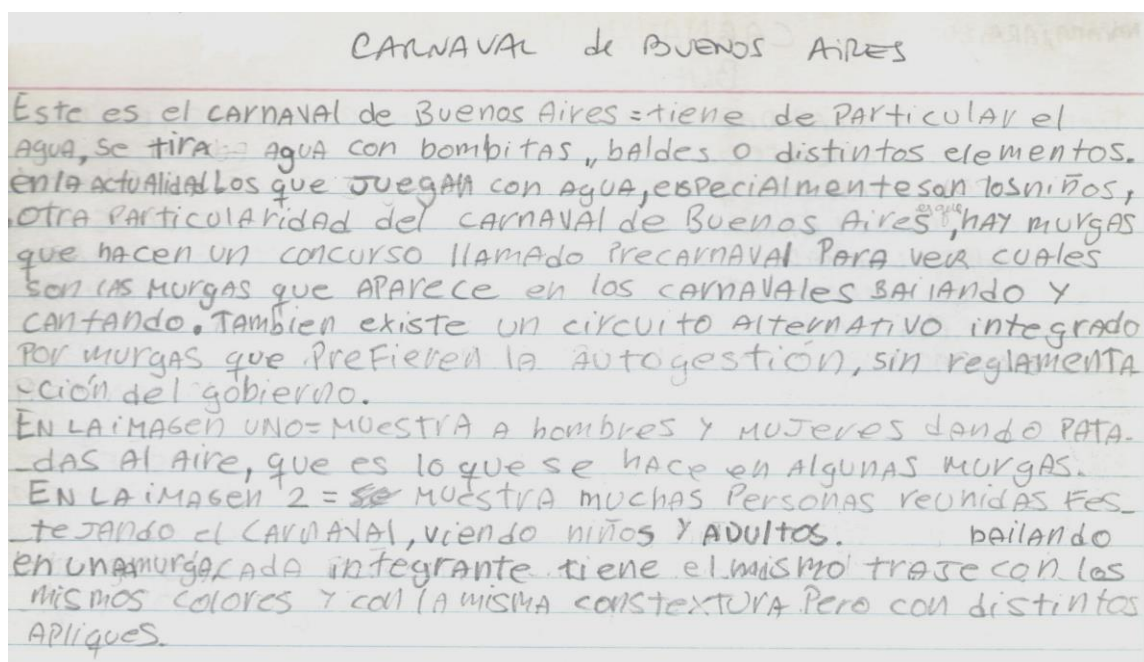 CARNAVAL de BUENOS AIRES
Este es el carnaval de Buenos Aires = tiene de particular el
agua, se tira agua con bombitas,, baldes o distintos elementos.
en la actualidad Los que juegan con agua, especialmente son los niños,
otra particularidad del carnaval de Buenos Aires es que, hay murgas
que hacen un concurso llamado Precarnaval Para ver cuales
son las murgas que aparece en los carnavales Bailando y
cantando. Tambien existe un circuito alternativo integrado
por murgas que Prefieren la autogestión, sin reglamenta
-ción del gobierno.
En la imagen uno = muestra a hombres y mujeres dando pata-
das al aire, que es lo que se hace en algunas murgas.
En la imagen 2 = se muestra muchas Personas reunidas fes-
tejando el carnaval, viendo niños y adultos. bailando
en una murga, cada integrante tiene el mismo traje con los
mismos colores y con la misma constextura Pero con distintos
apliques.